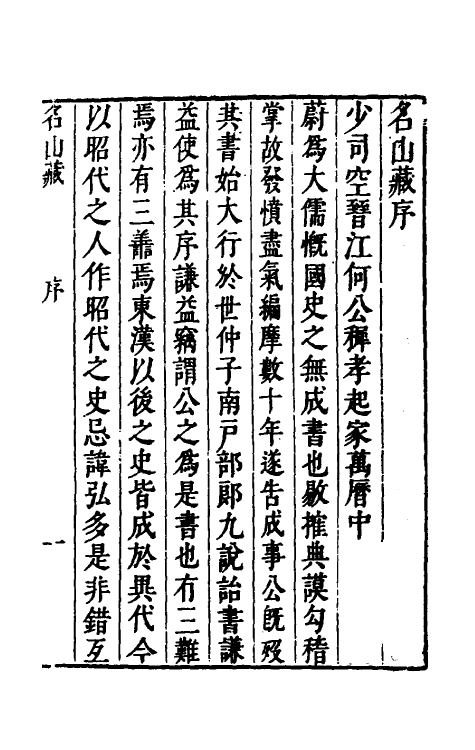 名山藏序
少司空晉江何公穉孝起家萬曆中
蔚為大儒慨國史之無成書也敭搉典謨勾稽
掌故發憤盡氣編摩數十年遂告成事公旣歿
其書始大行於世仲子南戸部郞九說詒書謙
益使為其序謙益竊謂公之為是書也有三難
焉亦有三善焉東漢以後之史皆成於異代今
以昭代之人作昭代之史忌諱弘多是非錯互
名山藏 序 一